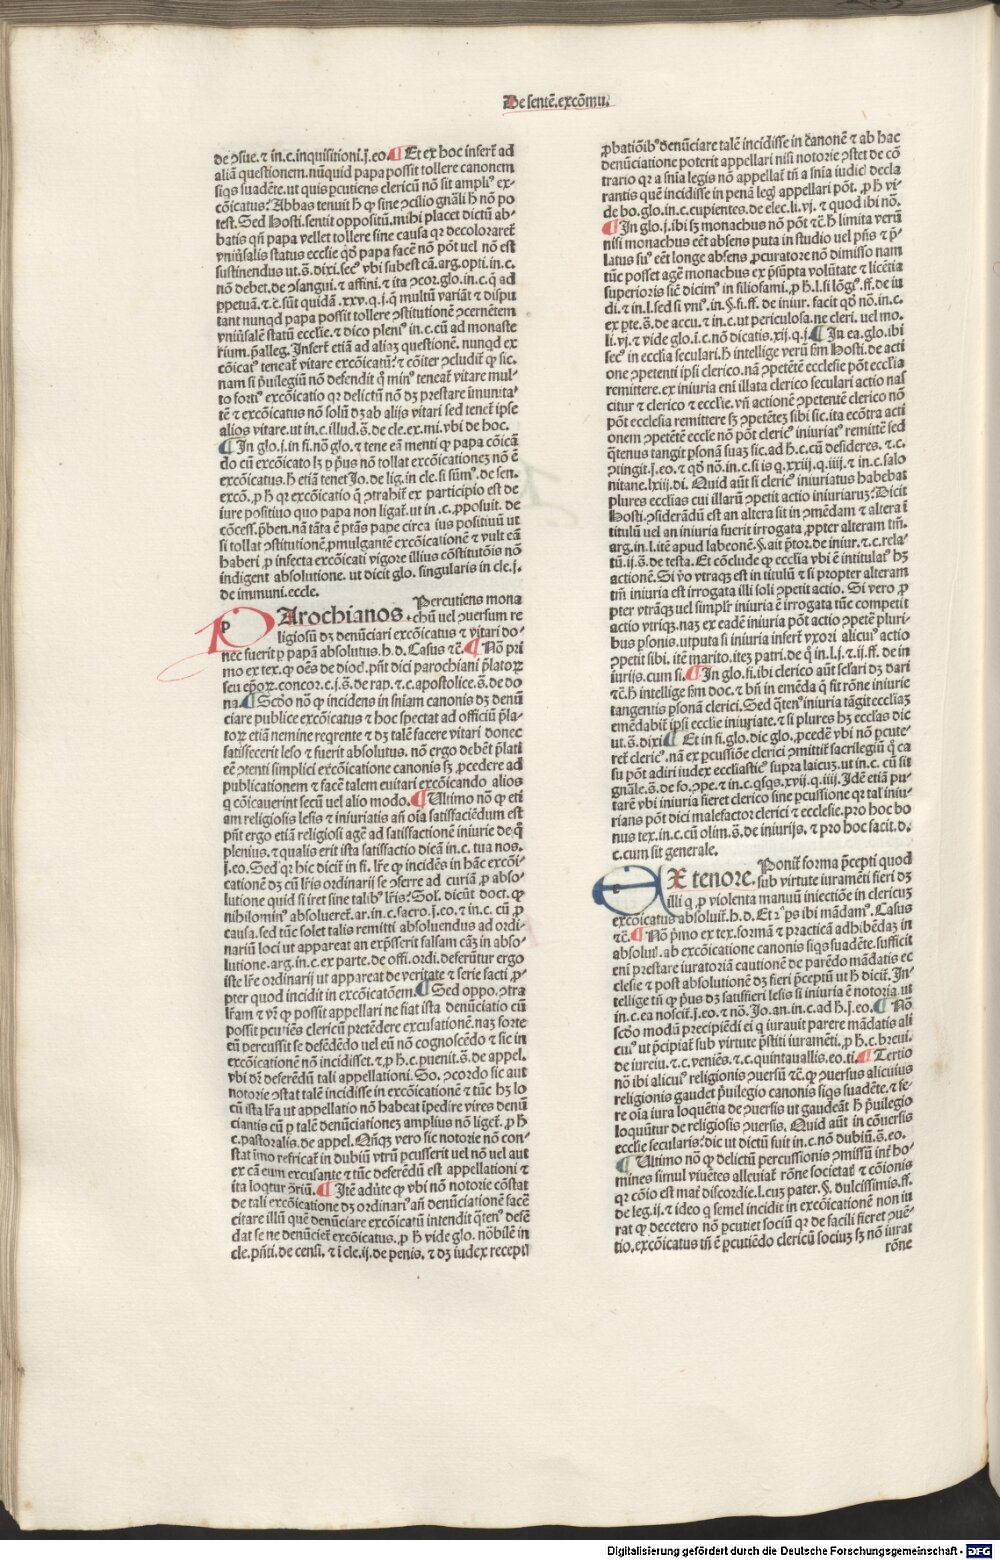 De sentē.excōmu.
de ↄsue.⁊ in.c.inquisitioni.j̄.eo.¶ Et ex hoc insert̄ ad
aliā questionem.nunquid papa possit tollere canonem
siqs suadēte.ut quis ꝑcutiens clericū nō sit ampliꝰ ex-
cōicatus? Abbas tenuit ħ ꝙ sine ↄcilio gnāli ħ nō po
test. Sed Hosti.sentit oppositū.mihi placet dictū ab-
batis qn̄ papa vellet tollere sine causa qꝛ decoloraret̄
vniūsalis status ecclie qd̄ papa facē nō pōt vel nō est
sustinendus ut.s̄.dixi.secꝰ vbi subest cā.arg.opti.in.c.
nō debet.de ↄsangui.⁊ affini.⁊ ita ↄcor.glo.in.c.q̄ ad
ꝑpetuā.⁊ c̄.sūt quidā.xxv.q.j.q̄ multū variāt ⁊ dispu
tant nunqd papa possit tollere ↄstitutionē ↄcernētem
vniūsalē statū ecclie.⁊ dico pleniꝰ in.c.cū ad monaste
rium.p̄alleg. Insert̄ etiā ad aliaꝫ questionē.nunqd ex
cōicatꝰ teneat̄ vitare excōicatū? ⁊ cōiter ↄcludit̄ ꝙ sic.
nam si p̄uilegiū nō defendit q̄ minꝰ teneat̄ vitare mul-
to fortiꝰ excōicatio qꝛ delictū nō dꝫ prestare īmunita-
tē ⁊ excōicatus nō solū dꝫ ab alijs vitari sed tenet̄ ipse
alios vitare.ut in.c.illud.s̄.de cle.ex.mi.vbi de hoc.
¶ In glo.j.in fi.nō glo.⁊ tene eā menti ꝙ papa cōicā
do cū excōicato lꝫ ꝑ p̄us nō tollat excōicationeꝫ nō ē
excōicatus.ħ etiā tenet Jo.de lig.in cle.si sūmꝰ.de sen.
excō.ꝓ ħ qꝛ excōicatio q̄ ↄtrahit̄ ex participio est de
iure positiuo quo papa non ligat̄.ut in.c.ꝓposuit.de
cōcess.p̄ben.nā tāta ē ptās pape circa ius positiuū ut
si tollat ↄstitutionē ꝓmulgantē excōicationē ⁊ vult eā
haberi ꝓ infecta excōicati vigore illius cōstitutōis nō
indigent absolutione.ut dicit glo.singularis in cle.j.
de immuni.eccle.
PArochianos. Percutiens mona
chū vel ↄuersum re
ligiosū dꝫ denūciari excōicatus ⁊ vitari do-
nec fuerit ꝑ papā absolutus.h.d. Casus ⁊c̄.¶ Nō pri
mo ex tex.ꝙ oēs de dioc̄.pn̄t dici parochiani p̄latoꝝ
seu ep̄oꝝ.concor.c.j.s̄.de rap.⁊ c.apostolice.s̄.de do
na.¶ Scd̄o nō ꝙ incidens in sniam canonis dꝫ denū
ciare publice excōicatus ⁊ hoc spectat ad officiū p̄la-
toꝝ etiā nemine reqrente ⁊ dꝫ talē facere vitari donec
satisfecerit leso ⁊ fuerit absolutus.nō ergo debēt p̄lati
eē ↄtenti simplici excōicatione canonis sꝫ ꝓcedere ad
publicationem ⁊ facē talem euitari excōicando alios
q cōicauerint secū vel alio modo.¶ Ultimo nō ꝙ eti
am religiosis lesis ⁊ iniuriatis an̄ oīa satisfaciēdum est
pn̄t ergo etiā religiosi agē ad satisfactionē iniurie de q̄
plenius.⁊ qualis erit ista satisfactio dicā in.c.tua nos.
j̄.eo. Sed qꝛ hic dicit̄ in fi.lr̄e ꝙ incidēs in hāc excōi-
cationē dꝫ cū lr̄is ordinarij se ↄferre ad curiā ꝓ abso-
lutione quid si iret sine talibꝰ lr̄is? Sol.dicūt doct.ꝙ
nihilominꝰ absolueret̄.ar.in.c.sacro.j̄.eo.⁊ in.c.cū ꝓ
causa.sed tūc solet talis remitti absoluendus ad ordi-
nariū loci ut appareat an exp̄sserit falsam cāꝫ in abso-
lutione.arg.in.c.ex parte.de offi.ordi.deferūtur ergo
iste lr̄e ordinarij ut appareat de veritate ⁊ serie facti ꝓ-
pter quod incidit in excōicatōem.¶ Sed oppo.ↄtra
lr̄am ⁊ vr̄ ꝙ possit appellari ne fiat ista denūciatio cū
possit ꝑcutiēs clericū pretēdere excusationē.naꝫ forte
eū ꝑcussit se defēdēdo vel eū nō cognoscēdo ⁊ sic in
excōicationē nō incidisset.⁊ ꝓ ħ.c.puenit.s̄.de appel.
vbi dr̄ deferēdū tali appellationi. So.ↄcordo sic aut
notorie ↄstat talē incidisse in excōicationē ⁊ tūc hꝫ lo
cū ista lr̄a ut appellatio nō habeat īpedire vires denū
ciantis cū ꝑ talē denūciationeꝫ amplius nō liget̄.ꝓ ħ
c.pastoralis.de appel. Qn̄qꝫ vero sic notorie nō con-
stat īmo refricat̄ in dubiū vtrū ꝑcusserit vel nō vel aut
ex cā eum excusante ⁊ tūc deferēdū est appellationi ⁊
ita loqtur ↄriū.¶ Itē adūte ꝙ vbi nō notorie cōstat
de tali excōicatione dꝫ ordinariꝰ an̄ denūciationē facē
citare illū quē denūciare excōicatū intendit qtenꝰ defē
dat se ne denūciet̄ excōicatus.ꝓ ħ vide glo.nōbilē in
cle.pn̄ti.de censi.⁊ ī cle.ij.de penis.⁊ dꝫ iudex receptꝭ
ꝓbatiōibꝰ denūciare talē incidisse in canonē ⁊ ab hac
denūciatione poterit appellari nisi notorie ↄstet de cō
trario qꝛ a snīa legis nō appellat̄ tn̄ a snīa iudicꝭ decla
rantis quē incidisse in penā legꝭ appellari pōt.ꝓ ħ vi-
de bo.glo.in.c.cupientes.de elec.li.vj.⁊ quod ibi nō.
¶ In glo.j.ibi sꝫ monachus nō pōt ⁊c̄.ħ limita verū
nisi monachus eēt absens puta in studio vel pn̄s ⁊ p̄-
latus suꝰ eēt longe absens ꝓcuratore nō dimisso nam
tūc posset agē monachus ex p̄sūpta volūtate ⁊ licētia
superioris sic̄ dicimꝰ in filiofami.ꝓ ħ.l.si lōgiꝰ.ff.de iu
di.⁊ in.l.sed si vnꝰ.in.§.fi.ff.de iniur.facit qd̄ nō.in.c.
ex pte.s̄.de accu.⁊ in.c.ut periculosa.ne cleri.uel mo.
li.vj.⁊ vide glo.ī.c.nō dicatis.xij.q.j.¶ In ea.glo.ibi
secꝰ in ecclia seculari.ħ intellige verū s̄m Hosti.de acti
one ↄpetenti ipsi clerico.nā ↄpetētē ecclesie pōt ecclia
remittere.ex iniuria eni illata clerico seculari actio nas
citur ⁊ clerico ⁊ ecclie.vn̄ actionē ↄpetentē clerico nō
pōt ecclesia remittere sꝫ ↄpetēteꝫ sibi sic.ita ecōtra acti
onem ↄpetētē ecclie nō pōt clericꝰ iniuriatꝰ remittē sed
q̄tenus tangit ꝑsonā suaꝫ sic.ad ħ.c.cū desideres.⁊.c.
ↄtingit.j̄.eo.⁊ qd̄ nō.in.c.si is q.xxiij.q.iiij.⁊ in.c.salo
nitane.lxiij.di. Quid aūt si clericꝰ iniuriatus habebat
plures ecclias cui illarū ↄpetit actio iniuriaruꝫ? Dicit
Hosti.ↄsiderādū est an altera sit in ↄmēdam ⁊ altera ī
titulū vel an iniuria fuerit irrogata ꝓpter alteram tm̄.
arg.in.l.itē apud labeonē.§.ait p̄tor.de iniur.⁊.c.rela-
tū.ij.s̄.de testa. Et cōclude ꝙ ecclia vbi ē intitulatꝰ hꝫ
actionē. Si v̄o vtraqꝫ est in titulū ⁊ si propter alteram
tm̄ iniuria est irrogata illi soli ↄpetit actio. Si vero ꝓ
pter vtrāqꝫ vel simplr̄ iniuria ē irrogata tūc competit
actio vtriqꝫ.naꝫ ex eadē iniuria pōt actio ↄpetē pluri-
bus ꝑsonis.utputa si iniuria insert̄ vxori alicuiꝰ actio
ↄpetit sibi.itē marito.iteꝫ patri.de q̄ in.l.j.⁊ ij.ff.de in
iurijs.cum si.¶ In glo.fi.ibi clerico aūt lesari dꝫ dari
⁊c̄.ħ intellige s̄m doc.⁊ bn̄ in emēda q̄ fit rōne iniurie
tangentis ꝑsonā clerici. Sed q̄tenꝰ iniuria tāgit eccliaꝫ
emēdabit̄ ipsi ecclie iniuriate.⁊ si plures hꝫ ecclias dic
ut.s̄.dixi¶ Et in fi.glo.dic glo.ꝓcedē vbi nō ꝑcute-
ret̄ clericꝰ.nā ex ꝑcussiōe clerici ↄmittit̄ sacrilegiū q̄ ca
su pōt adiri iudex eccliasticꝰ supra laicuꝫ.ut in.c.cū sit
gnāle.s̄.de fo.ↄpe.⁊ in.c.qsqs.xvij.q.iiij. Idē etiā pu-
tarē vbi iniuria fieret clerico sine ꝑcussione qꝛ tal iniu-
rians pōt dici malefactor clerici ⁊ ecclesie.pro hoc bo
nus tex.in.c.cū olim.s̄.de iniurijs.⁊ pro hoc facit.d.
c.cum sit generale.
EX tenore. Ponit̄ forma p̄cepti quod
sub virtute iuramēti fieri dꝫ
illi q ꝓ violenta manuū iniectiōe in clericuꝫ
excōicatus absoluit̄.h.d. Et 2ꝰ ps ibi mādamꝰ. Casus
⁊c̄.¶ Nō p̄mo ex tex.formā ⁊ practicā adhibēdaꝫ in
absoluꝭ.ab excōicatione canonis siqs suadēte.sufficit
eni prestare iuratoriā cautionē de parēdo mādatis ec
clesie ⁊ post absolutionē dꝫ fieri p̄ceptū ut ħ dicit̄. In-
tellige tn̄ ꝙ p̄us dꝫ satisfieri lesis si iniuria ē notoria.ut
in.c.ea noscit̄.j̄.eo.⁊ nō. Jo.an.in.c.ad ħ.j̄.eo.¶ Nō
scd̄o modū precipiēdi ei q iurauit parere mādatis ali
cuiꝰ ut p̄cipiat̄ sub virtute p̄stiti iuramēti.ꝓ ħ.c.breui.
de iureiu.⁊ c.veniēs.⁊ c.quintauallis.eo.ti.¶ Tertio
nō ibi alicuiꝰ religionis ↄuersū ⁊c̄.ꝙ ↄuersus alicuius
religionis gaudet p̄uilegio canonis siqs suadēte.⁊ se-
re oīa iura loquētia de ↄuersis ut gaudeāt ħ p̄uilegio
loquūtur de religiosis ↄuersis. Quid aūt in cōuersis
ecclie secularis? dic ut dictū fuit in.c.nō dubiū.s̄.eo.
¶ Ultimo nō ꝙ delictū percussionis ↄmissū int̄ ho-
mines simul viuētes alleuiat̄ rōne societatꝭ ⁊ cōionis
qꝛ cōio est mat̄ discordie.l.cuꝫ pater.§.dulcissimis.ff.
de leg.ij.⁊ ideo q semel incidit in excōicationē non iu
rat ꝙ decetero nō ꝑcutiet sociū qꝛ de facili fieret ↄuē-
tio.excōicatus tn̄ ē ꝑcutiēdo clericū sociuꝫ sꝫ nō iurat
rōne
Digitalisierung gefördert durch die Deutsche Forschungsgemeinschaft - DFG